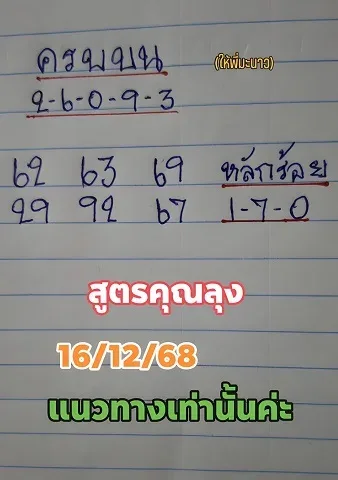 ครบบน
(ให้พี่มะนาว)
2-6-0-9-3
62 63 69 หลักร้อย
29 92 67 1-7-0
สูตรคุณลุง
16/12/68
แนวทางเท่านั้นค่ะ